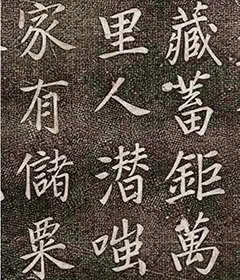 藏蓄鉅萬
里人潛嗤
家有儲粟